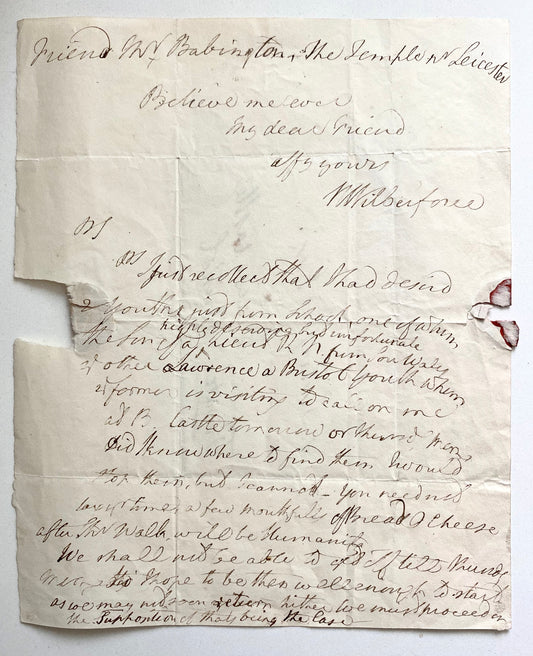 Friend Thos. Babington, The Temple nr Leicester
Believe me ever
My dear Friend
affy yours
W Wilberforce
PS
I just recollect that I had desird
2 Youths just from School, one of whom
highly deserving but unfortunate
the Son of a Friend
other Lawrence a Bristol Youth whom
former is visiting to call on me
at B Castle tomorrow or Thursd Morng
Did I know where to find them I would
stop them, but I cannot - You need not
a few mouthfuls of Bread & Cheese
after Walk will be Humanity
We shall not be able to get off till Thursd
I hope to be then well enough to start
as we may not soon return hither we must proceed on
the Supposition of that being the Case